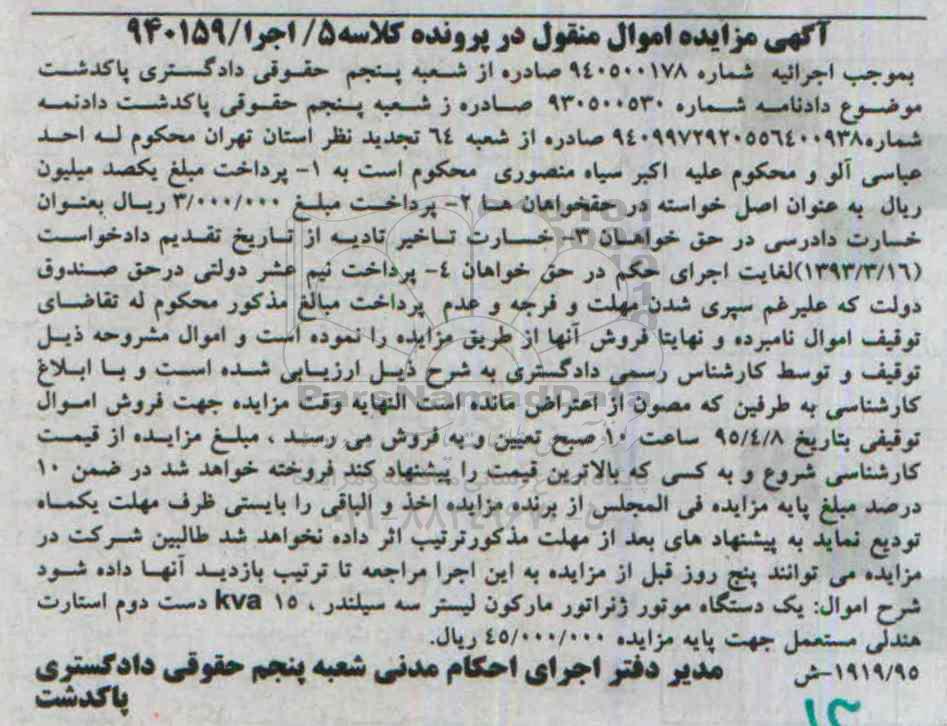 آگهی مزایده اموال منقول در پرونده کلاسه ۵/ اجرا/۹۴۰۱۵۹
بموجب اجرائیه شماره ۹۴۰۵۰۰۱۷۸ صادره از شعبه پنجم حقوقی دادگستری پاکدشت
موضوع دادنامه شماره ۹۳۰۵۰۰۵۳۰ صادره ز شعبه پنجم حقوقی پاکدشت دادنمه
شماره۹۴۰۹۹۷۲۹۲۰۵۵۶۴۰۰۹۳۸ صادره از شعبه ٦٤ تجدید نظر استان تهران محکوم له احد
عباسی آلو و محکوم علیه اکبر سیاه منصوری محکوم است به ۱- پرداخت مبلغ یکصد میلیون
ریال به عنوان اصل خواسته در حقخواهان ها ۲- پرداخت مبلغ ۳/۰۰۰/۰۰۰ ریال بعنوان
خسارت دادرسی در حق خواهان ۳- خسارت تاخیر تادیه از تاریخ تقدیم دادخواست
(۱۳۹۳/۳/۱٦)لغایت اجرای حکم در حق خواهان ٤- پرداخت نیم عشر دولتی درحق صندوق
دولت که علیرغم سپری شدن مهلت و فرجه و عدم پرداخت مبالغ مذکور محکوم له تقاضای
توقیف اموال نامبرده و نهایتا فروش آنها از طریق مزایده را نموده است و اموال مشروحه ذیل
توقیف و توسط کارشناس رسمی دادگستری به شرح ذیل ارزیابی شده است و با ابلاغ
کارشناسی به طرفین که مصون از اعتراض مانده است النهایه وقت مزایده جهت فروش اموال
توقیفی بتاریخ ۹۵/٤/۸ ساعت ۱۰ صبح تعیین و به فروش می رسد ، مبلغ مزایده از قیمت
کارشناسی شروع و به کسی که بالاترین قیمت را پیشنهاد کند فروخته خواهد شد در ضمن ۱۰
درصد مبلغ پایه مزایده فی المجلس از برنده مزایده اخذ و الباقی را بایستی ظرف مهلت یکماه
تودیع نماید به پیشنهاد های بعد از مهلت مذکورترتیب اثر داده نخواهد شد طالبین شرکت در
مزایده می توانند پنج روز قبل از مزایده به این اجرا مراجعه تا ترتیب بازدید آنها داده شود
شرح اموال: یک دستگاه موتور ژنراتور مارکون لیستر سه سیلندر ، ۱۵ kva دست دوم استارت
هندلی مستعمل جهت پایه مزایده ٤۵/۰۰۰/۰۰۰ ریال.
۱۹۱۹/۹۵-ش مدیر دفتر اجرای احکام مدنی شعبه پنجم حقوقی دادگستری
پاکدشت
ParsNamadData